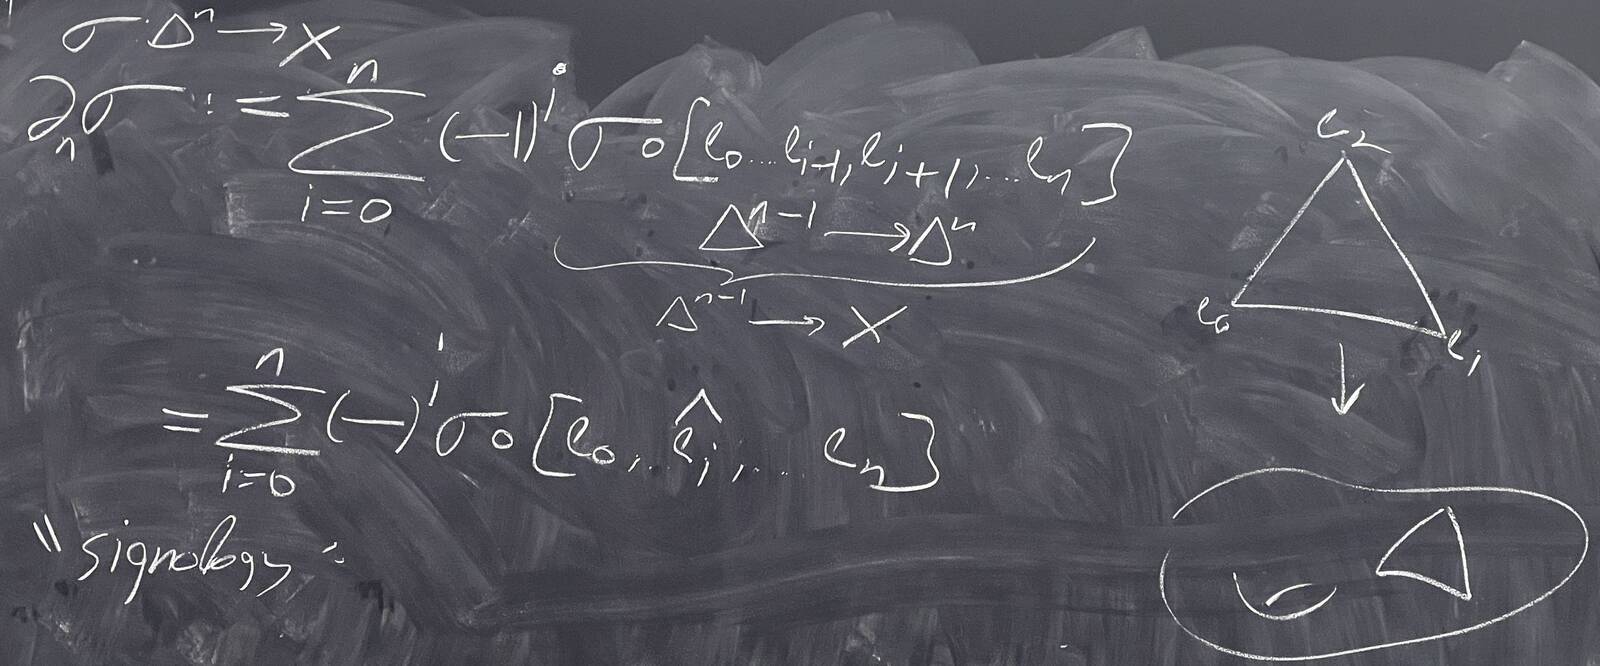 σ: Δⁿ → X
∂ₙσ := ∑_{i=0}^{n} (-1)ⁱ σ∘[e₀...e_{i-1}, e_{i+1}, ... eₙ]
Δⁿ⁻¹ → Δⁿ
Δⁿ⁻¹ → X
= ∑_{i=0}^{n} (-)ⁱ σ∘[e₀,..ê_i,... eₙ]
"signology"
e₂
e₀
e₁